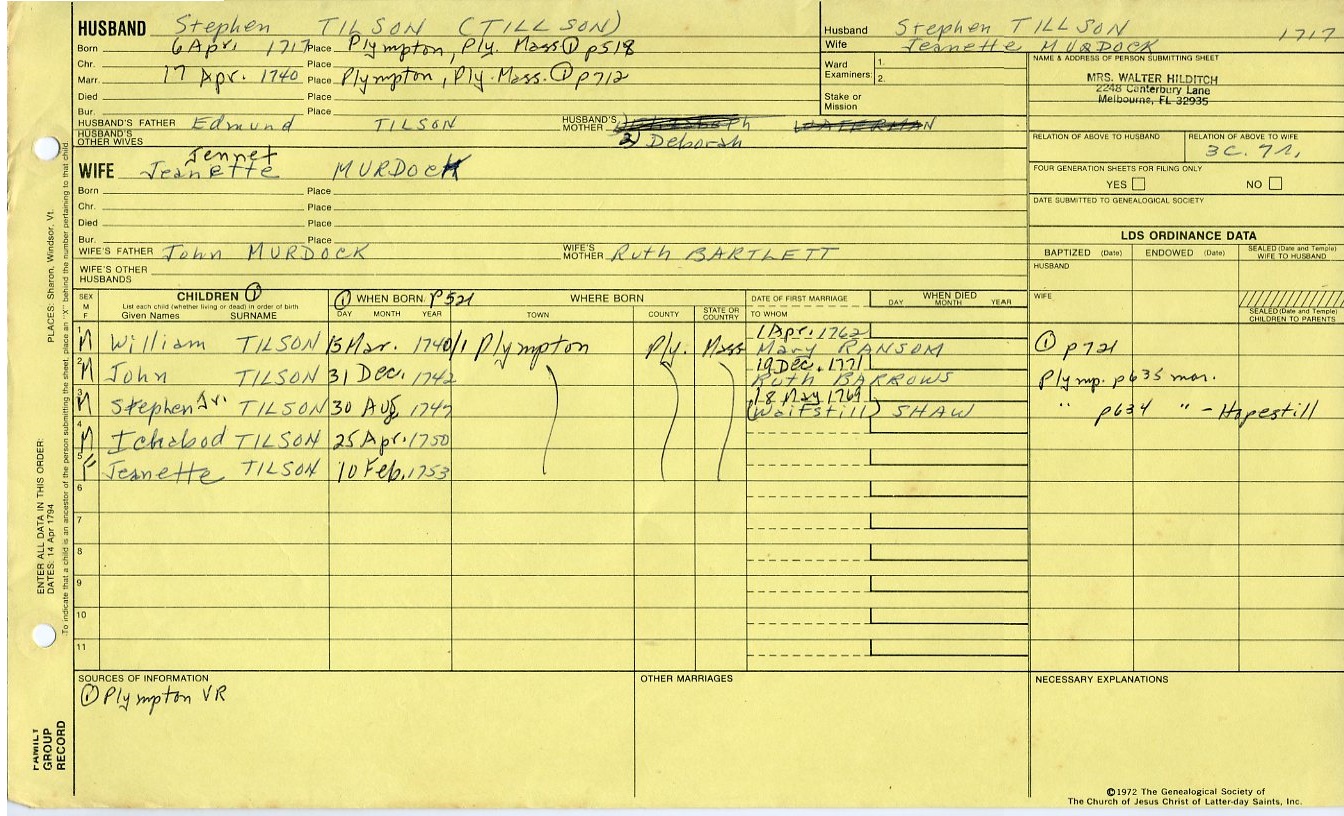 HUSBAND Stephen TILSON (TILLSON)
Born 6 Apr. 1717 Place Plympton, Ply. Mass ① p518
Chr. Place
Marr. 17 Apr. 1740 Place Plympton, Ply. Mass. ① p712
Died Place
Bur. Place
HUSBAND'S FATHER Edmund TILSON HUSBAND'S MOTHER WATERMAN
2) Deborah
HUSBAND'S OTHER WIVES
Husband Stephen TILLSON 1717
Wife Jeanette MURDOCK
Ward Examiners: 1.
2.
Stake or Mission
NAME & ADDRESS OF PERSON SUBMITTING SHEET
MRS. WALTER HILDITCH
2248 Canterbury Lane
Melbourne, FL 32935
RELATION OF ABOVE TO HUSBAND RELATION OF ABOVE TO WIFE
3C. 7r.
FOUR GENERATION SHEETS FOR FILING ONLY
YES NO
DATE SUBMITTED TO GENEALOGICAL SOCIETY
Jennet
WIFE Jeanette MURDOCK
Born Place
Chr. Place
Died Place
Bur. Place
WIFE'S FATHER John MURDOCK WIFE'S MOTHER Ruth BARTLETT
WIFE'S OTHER HUSBANDS
LDS ORDINANCE DATA
BAPTIZED (Date) ENDOWED (Date) SEALED (Date and Temple) WIFE TO HUSBAND
HUSBAND
WIFE
SEALED (Date and Temple) CHILDREN TO PARENTS
SEX M F CHILDREN ① List each child (whether living or dead) in order of birth Given Names SURNAME
① WHEN BORN p521 DAY MONTH YEAR
WHERE BORN TOWN COUNTY STATE OR COUNTRY
DATE OF FIRST MARRIAGE TO WHOM
WHEN DIED DAY MONTH YEAR
1 M William TILSON 15 Mar. 1740/1 Plympton Ply. Mass 1 Apr. 1762 Mary RANSOM ① p721
2 M John TILSON 31 Dec. 1742 19 Dec. 1771 Ruth BARROWS Plymp. p635 mar.
3 M Stephen Jr. TILSON 30 Aug 1747 18 May 1769 (Waitstill) SHAW " p634 " - Hopestill
4 M Ichabod TILSON 25 Apr. 1750
5 F Jeanette TILSON 10 Feb. 1753
6
7
8
9
10
11
SOURCES OF INFORMATION
① Plympton VR
OTHER MARRIAGES
NECESSARY EXPLANATIONS
©1972 The Genealogical Society of
The Church of Jesus Christ of Latter-day Saints, Inc.
PLACES: Sharon, Windsor, Vt.
ENTER ALL DATA IN THIS ORDER:
DATES: 14 Apr 1794
To indicate that a child is an ancestor of the person submitting the sheet, place an "X" behind the number pertaining to that child.
FAMILY
GROUP
RECORD